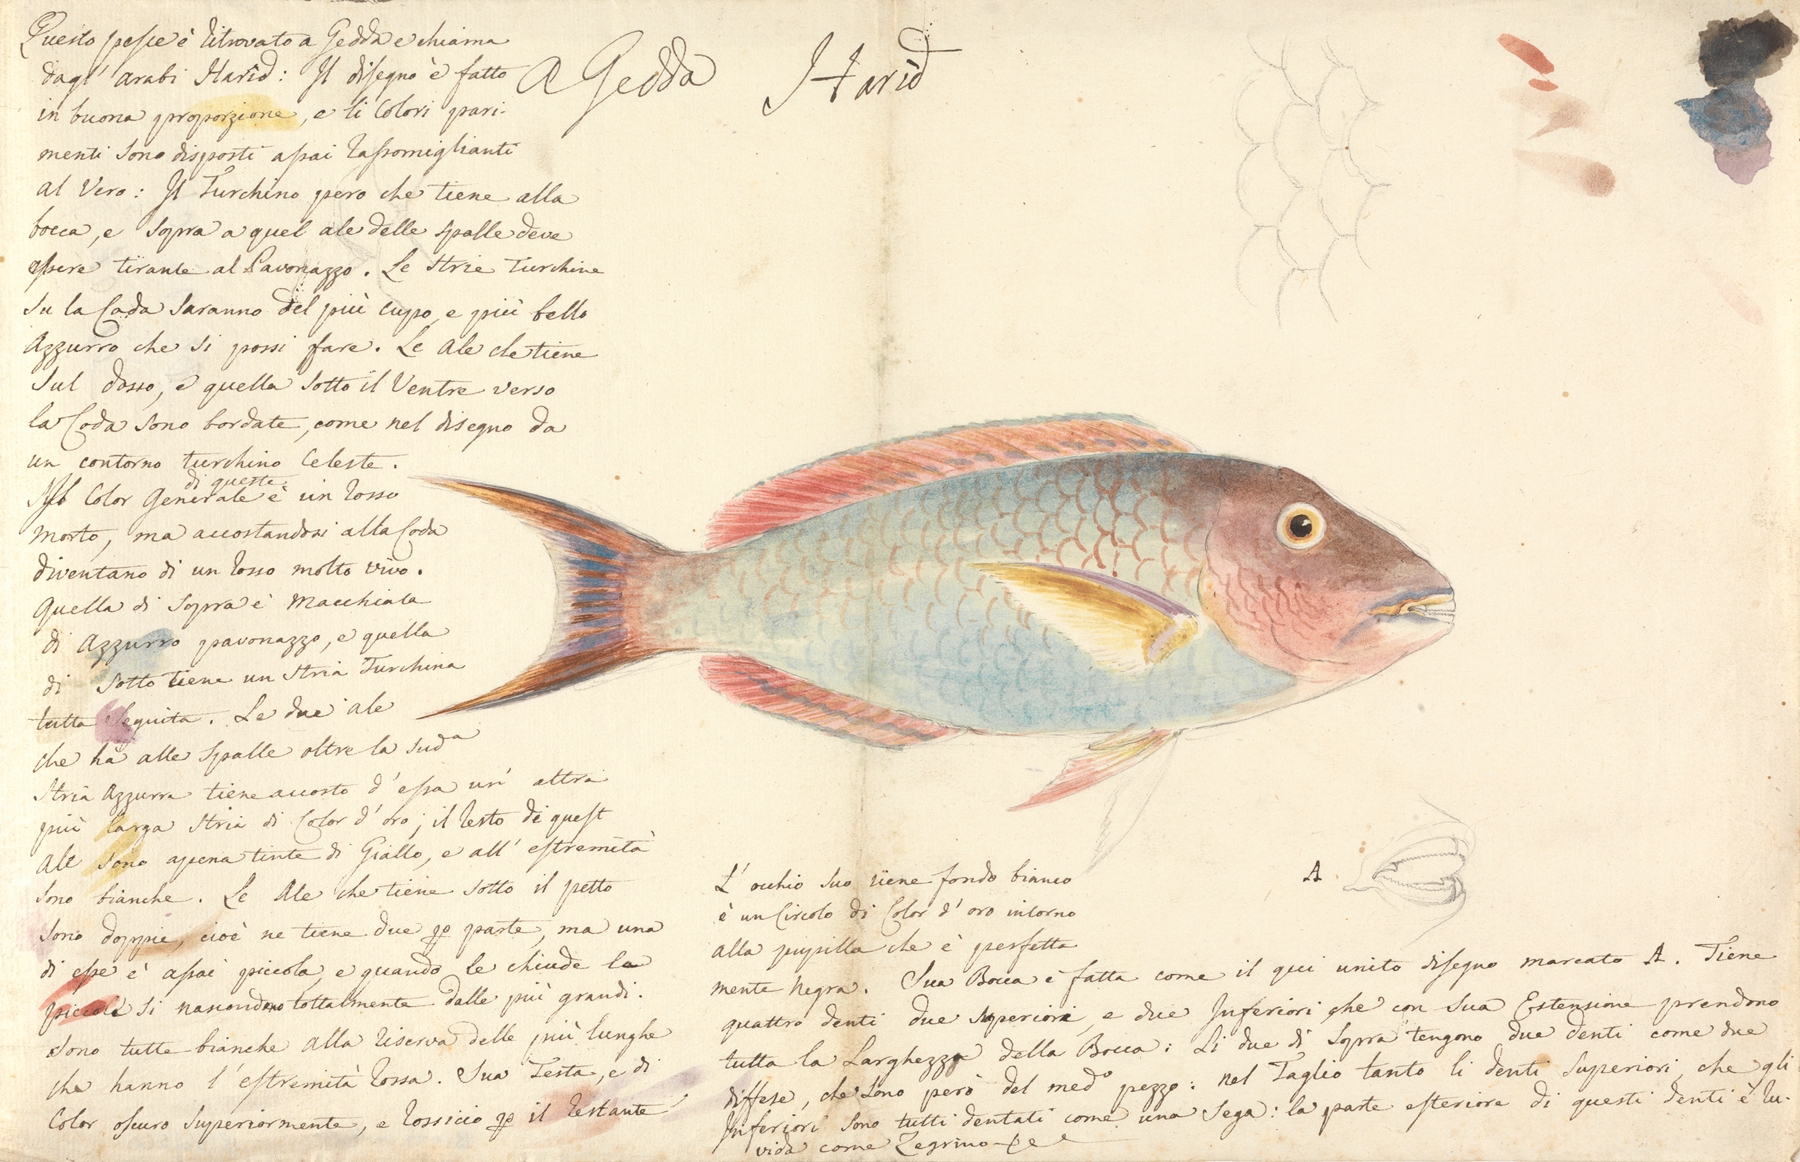 A Gedda Harid
Questo pesce è ritrovato a Gedda e chiama
dagl' Arabi Harid: Il disegno è fatto
in buona proporzione, e li Colori pari-
menti sono disposti assai rassomiglianti
al Vero: Il Turchino pero che tiene alla
bocca, e sopra a quel ale delle spalle deve
essere tirante al Pavonazzo. Le strie Turchine
su la Coda saranno del più cupo, e più bello
Azzurro che si possi fare. Le Ale che tiene
sul dosso, e quella sotto il Ventre verso
la Coda sono bordate, come nel disegno da
un contorno turchino Celeste.
Il Color Generale di queste è un rosso
morto, ma accostandosi alla Coda
diventano di un rosso molto vivo.
Quella di sopra è Macchiata
di Azzurro pavonazzo, e quella
di sotto tiene un stria Turchina
tutta seguita. Le due ale
che hà alle spalle oltre la sud.a
stria Azzurra tiene accosto d'essa un' altra
più larga stria di Color d'oro; il resto di quest
ale sono apena tinte di Giallo, e all' estremità
sono bianche. Le Ale che tiene sotto il petto
sono doppie, cioè ne tiene due per parte, ma una
di esse è assai piccola, e quando le chiude le
piccole si nascondono tottalmente dalle più grandi.
sono tutte bianche alla riserva delle più lunghe
che hanno l'estremità rossa. Sua Testa, e di
Color oscuro superiormente, e rossicio per il restante
L'occhio suo tiene fondo bianco
è un Circolo di Color d'oro intorno
alla pupilla che è perfetta
mente Negra. Sua Bocca è fatta come il qui unito disegno marcato A. Tiene
quattro denti due superiori, e due Inferiori che con sua Estensione prendono
tutta la Larghezza della Bocca: Li due di sopra tengono due denti come due
diffese, che sono però del med.o pezzo: nel Taglio tanto li denti superiori, che gli
Inferiori sono tutti dentati come una sega: la parte esteriore di questi denti è lu-
vida come Zegrino
A